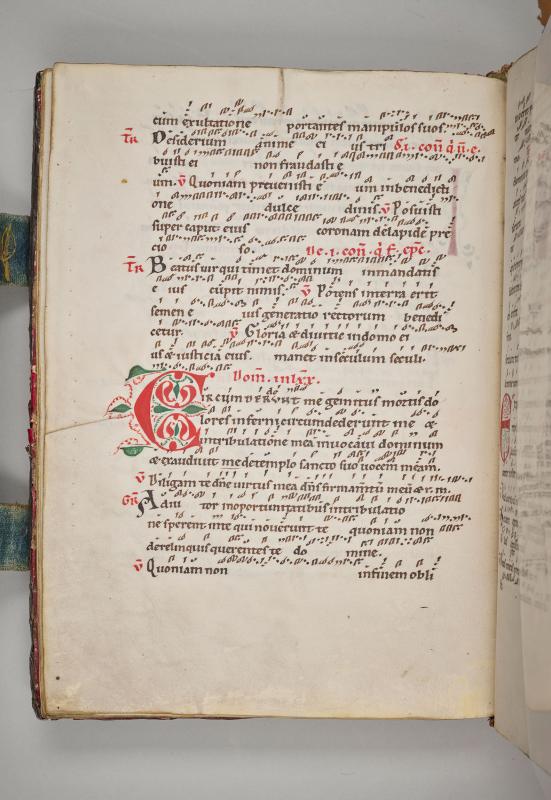 cum exultatione portantes manipulos suos.
TR Desiderium anime ei us tri Si. 1. conf. q n. e.
buisti ei non fraudasti e
um. V Quoniam prevenisti e um inbenedicti
one dulce dinis. V Posuisti
super caput eius coronam delapide pre
cio so. De. 1. conf. q f. epc.
TR Beatus vir qui timet dominum inmandatis
e ius cupit nimis. V Potens interra erit
semen e ius generatio rectorum benedi
cetur. V Gloria & divitie indomo ei
us & iusticia eius manet inseculum seculi.
Dom. in lxx.
CIRCUMDEDERUNT me gemitus mortis do
lores inferni circumdederunt me &
intribulatione mea invocavi dominum
& exaudivit me detemplo sancto suo vocem meam.
V Diligam te dne virtus mea dns firmamtu meu & r. m.
GR Adiu tor inoportunitatibus intribulatio
ne sperent inte qui noverunt te quoniam non
derelinquis querentes te do mine.
V Quoniam non infinem obli